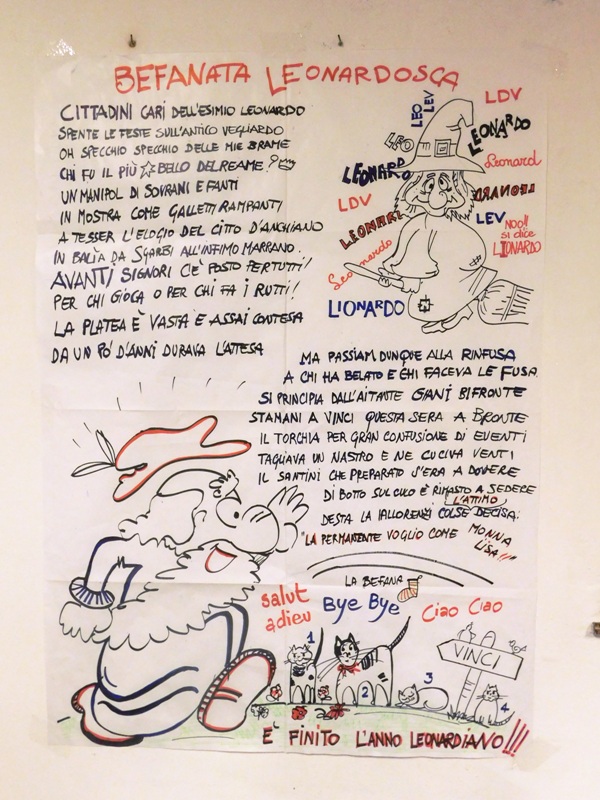 BEFANATA LEONARDOSCA
CITTADINI CARI DELL'ESIMIO LEONARDO
SPENTE LE FESTE SULL'ANTICO VEGLIARDO
OH SPECCHIO SPECCHIO DELLE MIE BRAME
CHI FU IL PIÙ BELLO DEL REAME?
UN MANIPOL DI SOVRANI E FANTI
IN MOSTRA COME GALLETTI RAMPANTI
A TESSER L'ELOGIO DEL CITTO D'ANCHIANO
IN BALÌA DA SGARBI ALL'INFIMO MARRANO.
AVANTI SIGNORI C'È POSTO PER TUTTI!
PER CHI GIOCA O PER CHI FA I RUTTI!
LA PLATEA È VASTA E ASSAI CONTESA
DA UN PO' D'ANNI DURAVA L'ATTESA
LEO
LEV
LDV
LEO
LEONARDO
LEONARDO
Leonard
LDV
LEONARD
LEONARDO
LEV
NOO!!
si dice
LIONARDO
Leonardo
LIONARDO
MA PASSIAM DUNQUE ALLA RINFUSA
A CHI HA BELATO E CHI FACEVA LE FUSA.
SI PRINCIPIA DALL'AITANTE GIANI BIFRONTE
STAMANI A VINCI QUESTA SERA A BRONTE
IL TORCHIA PER GRAN CONFUSIONE DI EVENTI
TAGLIAVA UN NASTRO E NE CUCIVA VENTI
IL SANTINI CHE PREPARATO S'ERA A DOVERE
DI BOTTO SUL CULO È RIMASTO A SEDERE
L'ATTIMO
DESTA LA IALLORENZI COLSE DECISA:
"LA PERMANENTE VOGLIO COME MONNA
LISA"!!
LA BEFANA
salut
adieu
Bye Bye
Ciao Ciao
1
2
3
4
VINCI
È FINITO L'ANNO LEONARDIANO!!!